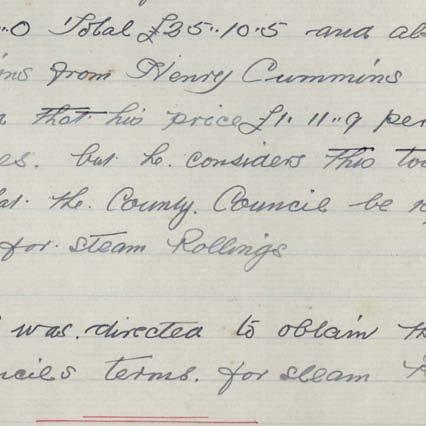 0 Total £35..10..5 and al
ins from Henry Cummins
that his price £1. 11..9 per
es. but he considers this to
at the County Council be
for steam Rollings
was directed to obtain th
ncils terms. for steam R